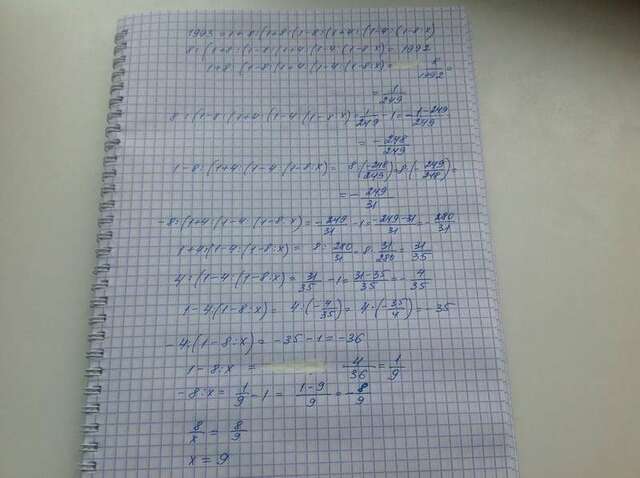 1993 = 1 + 8:(1+8:(1-8:(1+4:(1-4:(1-8:x)
8:(1+8:(1-8:(1+4:(1-4:(1-8:x) = 1992
1+8:(1-8:(1+4:(1-4:(1-8:x) = 8/1992 =
= 1/249
8:(1-8:(1+4:(1-4:(1-8:x) = 1/249 - 1 = 1-249/249
= -248/249
1-8:(1+4:(1-4:(1-8:x) = 8:(-248/249) = 8·(-249/248) =
= -249/31
-8:(1+4:(1-4:(1-8:x) = -249/31 - 1 = -249-31/31 = -280/31
1+4:(1-4:(1-8:x) = 8:280/31 = 8·31/280 = 31/35
4:(1-4:(1-8:x) = 31/35 - 1 = 31-35/35 = -4/35
1-4:(1-8:x) = 4:(-4/35) = 4·(-35/4) = -35
-4:(1-8:x) = -35-1 = -36
1-8:x = 4/36 = 1/9
-8:x = 1/9 - 1 = 1-9/9 = -8/9
8/x = 8/9
x = 9